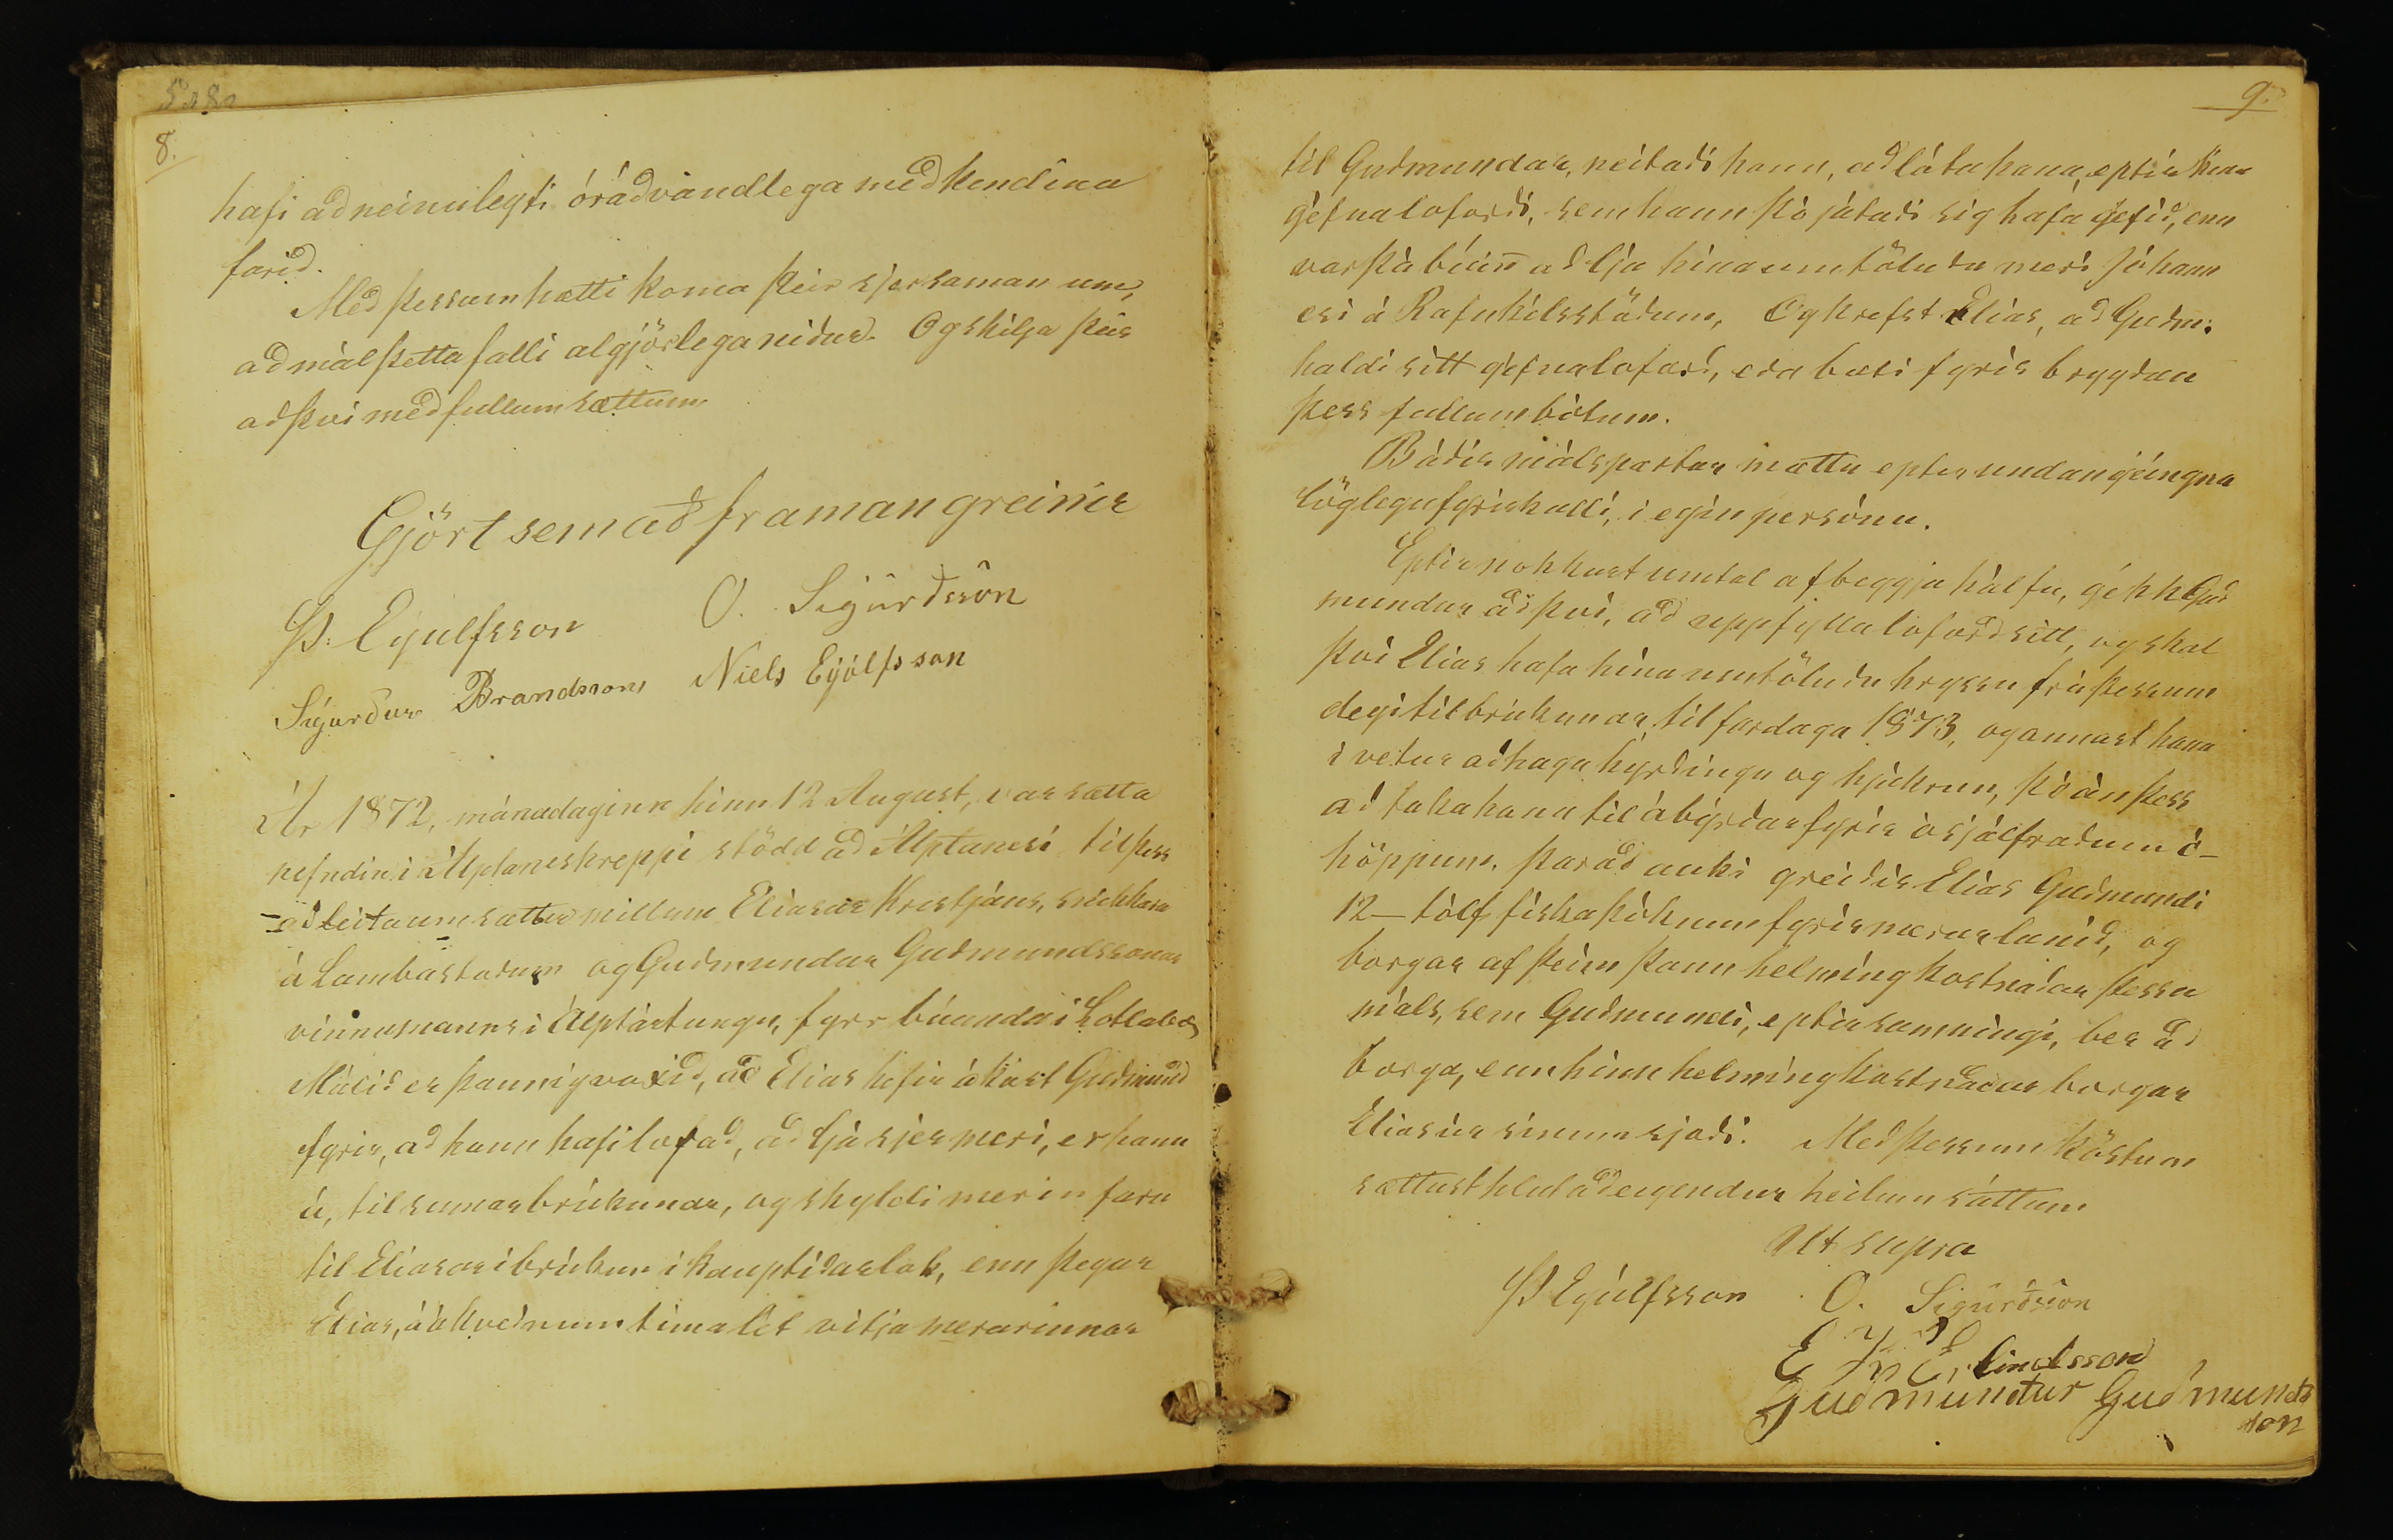 8.
hafi að neinu leyti óráðvandlega með kendina
farið.
Með þessum hætti koma þeir sjer saman um,
að mál þetta falli algjörlega niður. Og skilja þeir
að því með fullum sættum
Gjört sem að framan greinir
Þ. Eyulfsson O. Sigurðsson
Sigurður Brandsson Niels Eýólfsson
Ár 1872, mánadaginn hinn 12 August, var sátta
nefndin i Álptaneshreppi stödd að Álptanesi til þess
að leita um sættir millum Eliasar Kristjáns, snikkara
á Lambastodum og Guðmundar Guðmundssonar
vinnumanns i Álptártungu, fyrr búanda i
Málið er þannig vaxið, að Elias hefir ákært Guðmund
fyrir, að hann hafi lofað, að ljá sjer meri, er hann
á, til sumarbrúkunar, og skyldi merin fara
til Eliasar i brúkun i kauptiðarlok, enn þegar
Elias, á ákveðnum tima lét vitja merarinnar
9.
til Guðmundar, neitaði hann, að láta hana, eptir
gefna loforði, sem hann þó játaði sig hafa gefið, enn
var þá búinn að ljá hina umtöluðu meri Jóhann
esi á Rafnkelsstöðum, Og krefst Elias, að Guðm:
haldi sitt gefna loforð, eða bæti fyrir brygðan
þess fullum bótum.
Báðir málspartar mættu epter undangeingna
löglegu fyrirkalli, i egin persónu.
Eptir nokkurt umtal af beggja hálfu, gekk Guð
mundur að þvi, að uppfylla loforð sitt, og skal
þvi Elias hafa hina umtöluðu hryssu frá þessum
degi til brúkunar, til fardaga 1873, og annast hana
i vetur að haga hyrðingu og hjúkrun, þó án þess
að taka hana til ábyrðar fyrir ósjálfráðum ó-
höppum. Þar að auki greiðir Elias Guðmundi
12 - tólf fiska þóknun fyrir merarlánið, og
borgar af þeim þann helming kostnaðar þessa
máls, sem Guðmundi, eptir samningi, ber að
borga, enn hinn helming kostnaðar borgar
Elias úr sinum sjóði. Með þessum kostum
sættust hlutaðeigendur heilum sáttum
Ut supra
Þ Eyúlfsson O. Sigurðsson
Guðmundur Guðmunds
son